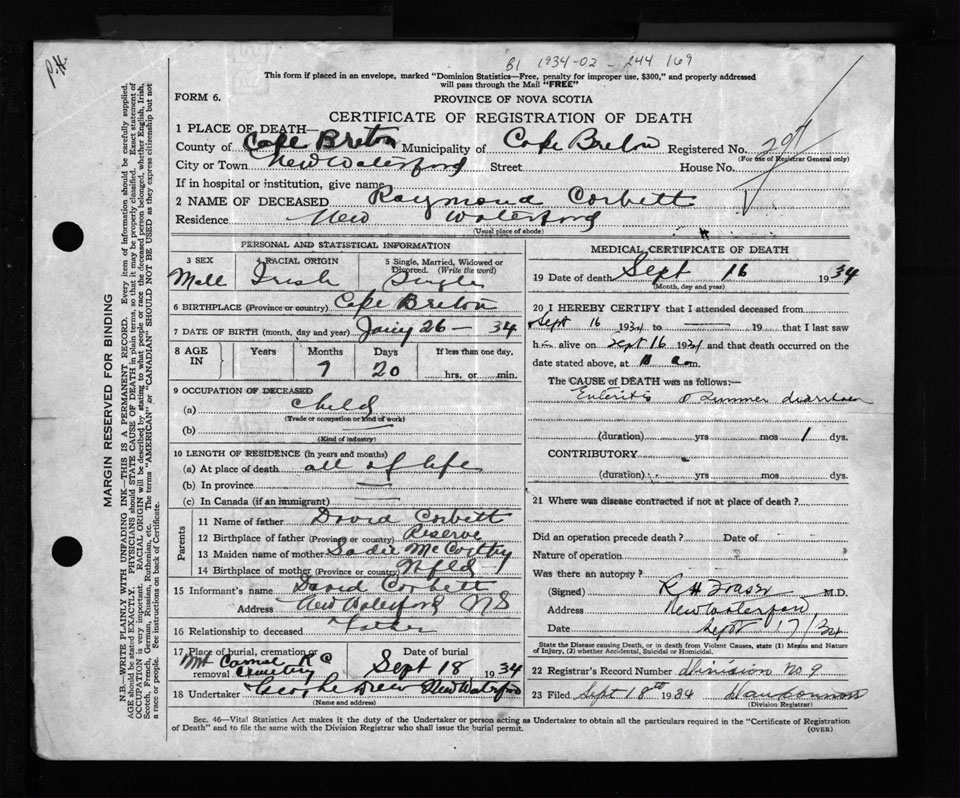 P.H.
B1 1934-02-244 169
This form if placed in an envelope, marked "Dominion Statistics—Free, penalty for improper use, $300," and properly addressed
will pass through the Mail "FREE"
FORM 6.
PROVINCE OF NOVA SCOTIA
CERTIFICATE OF REGISTRATION OF DEATH
1 PLACE OF DEATH—
County of Cape Breton Municipality of Cape Breton Registered No.
(For use of Registrar General only)
City or Town New Waterford Street House No.
If in hospital or institution, give name
2 NAME OF DECEASED Raymond Corbett
Residence New Waterford
(Usual place of abode)
PERSONAL AND STATISTICAL INFORMATION
3 SEX 4 RACIAL ORIGIN 5 Single, Married, Widowed or
Divorced. (Write the word)
Mall Irish Single
6 BIRTHPLACE (Province or country) Cape Breton
7 DATE OF BIRTH (month, day and year) Jany 26 — 34
8 AGE IN Years Months Days If less than one day,
7 20 hrs. or min.
9 OCCUPATION OF DECEASED
(a) child
(Trade or occupation or kind of work)
(b) —
(Kind of industry)
10 LENGTH OF RESIDENCE (in years and months)
(a) At place of death all of life
(b) In province —
(c) In Canada (if an immigrant) —
Parents
11 Name of father David Corbett
12 Birthplace of father (Province or country) Reserve
13 Maiden name of mother Sadie McCarthy
14 Birthplace of mother (Province or country) Nfld
15 Informant's name David Corbett
Address New Waterford NS
16 Relationship to deceased Father
17 Place of burial, cremation or removal Mt Carmel R C Cemetery Date of burial Sept 18 1934
18 Undertaker George Drew New Waterford
(Name and address)
MEDICAL CERTIFICATE OF DEATH
19 Date of death Sept 16 1934
(Month, day and year)
20 I HEREBY CERTIFY that I attended deceased from
Sept 16 1934 to — 19 that I last saw
him alive on Sept 16 1934 and that death occurred on the
date stated above, at 10 a.m.
The CAUSE of DEATH was as follows:—
Enteritis Summer diarrhoea
(duration) yrs mos 1 dys.
CONTRIBUTORY
(duration) yrs mos dys.
21 Where was disease contracted if not at place of death?
Did an operation precede death? Date of
Nature of operation
Was there an autopsy?
(Signed) R H Fraser M.D.
Address New Waterford
Date Sept 17/34
State the Disease causing Death, or in death from Violent Causes, state (1) Means and
Nature of Injury, (2) whether Accidental, Suicidal or Homicidal.
22 Registrar's Record Number division No 9
23 Filed Sept 18th 1934
(Division Registrar)
Sec. 46—Vital Statistics Act makes it the duty of the Undertaker or person acting as Undertaker to obtain all the particulars required in the "Certificate of Registration
of Death" and to file the same with the Division Registrar who shall issue the burial permit. (OVER)
MARGIN RESERVED FOR BINDING
N.B.—WRITE PLAINLY WITH UNFADING INK—THIS IS A PERMANENT RECORD. Every item of information should be carefully supplied.
AGE should be stated EXACTLY. PHYSICIANS should STATE CAUSE OF DEATH in plain terms, so that it may be properly classified. Exact statement of
OCCUPATION is very important. RACIAL ORIGIN will be described by stating to what people or race the deceased person belonged, whether English, Irish,
Scotch, French, German, Russian, Ruthenian, etc. The terms "AMERICAN" or "CANADIAN" SHOULD NOT BE USED as they express citizenship but not
a race or people. See instructions on back of Certificate.